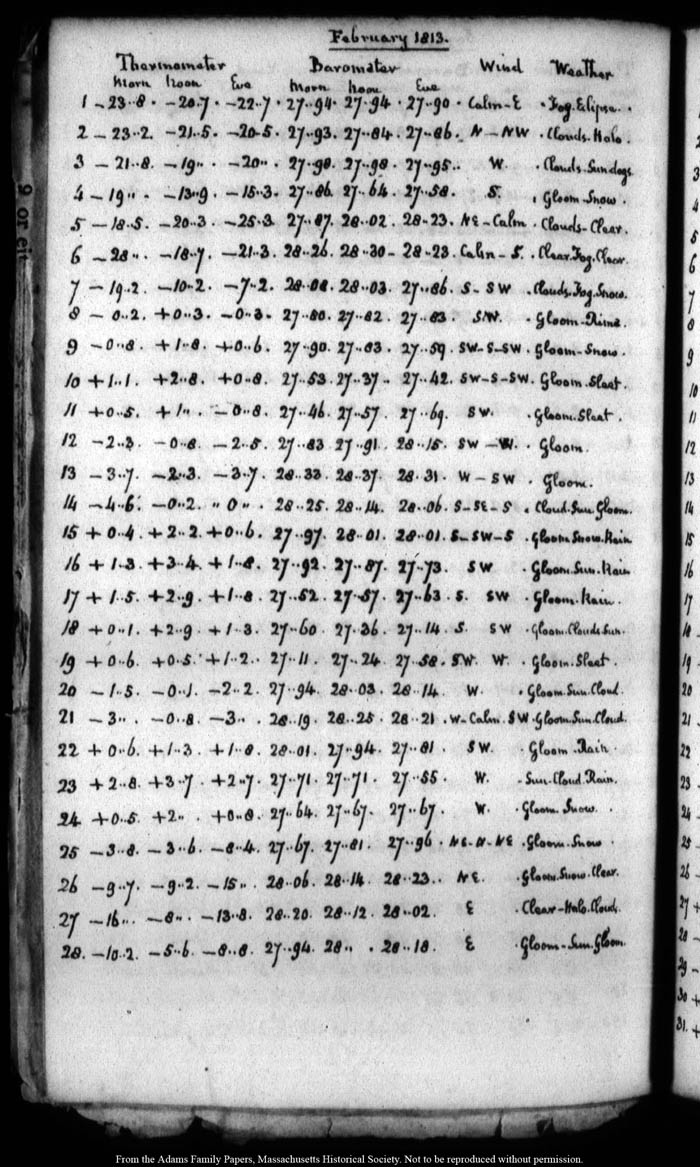 February 1813.
Thermometer Barometer Wind Weather
Morn Noon Eve Morn Noon Eve
1 -23..8. -20..7. -22..7. 27..94. 27..94. 27..90. Calm-E. Fog. Eclipse.
2 -23..2. -21..5. -20..5. 27..93. 27..84. 27..86. N-NW. Clouds. Halo.
3 -21..8. -19.. -20.. 27..90. 27..90. 27..95. W. Clouds. Sundogs
4 -19.. -13..9. -15..3. 27..86. 27..64. 27..58. S. Gloom-Snow.
5 -18..5. -20..3. -25..3. 27..87. 28..02. 28..23. NE-Calm. Clouds-Clear.
6 -28.. -18..7. -21..3. 28..26. 28..30. 28..23. Calm-S. Clear. Fog. Clear.
7 -19..2. -10..2. -7..2. 28..08. 28..03. 27..86. S-SW. Clouds. Fog. Snow.
8 -0..2. +0..3. -0..3. 27..80. 27..82. 27..83. SW. Gloom-Rime.
9 -0..8. +1..8. +0..6. 27..90. 27..83. 27..59. SW-S-SW. Gloom-Snow.
10 +1..1. +2..8. +0..8. 27..53. 27..37. 27..42. SW-S-SW. Gloom. Sleet.
11 +0..5. +1.. -0..8. 27..46. 27..57. 27..69. SW. Gloom. Sleet.
12 -2..3. -0..8. -2..5. 27..83. 27..91. 28..15. SW-W. Gloom.
13 -3..7. -2..3. -3..7. 28..33. 28..37. 28..31. W-SW. Gloom.
14 -4..6. -0..2. "0".. 28..25. 28..14. 28..06. S-SE-S. Cloud. Sun. Gloom.
15 +0..4. +2..2. +0..6. 27..97. 28..01. 28..01. S-SW-S. Gloom. Snow. Rain
16 +1..3. +3..4. +1..8. 27..92. 27..87. 27..73. SW. Gloom. Sun. Rain
17 +1..5. +2..9. +1..8. 27..52. 27..57. 27..63. S. SW. Gloom. Rain.
18 +0..1. +2..9. +1..3. 27..60. 27..36. 27..14. S. SW. Gloom. Clouds. Sun.
19 +0..6. +0..5. +1..2. 27..11. 27..24. 27..58. SW. W. Gloom. Sleet.
20 -1..5. -0..1. -2..2. 27..94. 28..03. 28..14. W. Gloom. Sun. Cloud.
21 -3.. -0..8. -3.. 28..19. 28..25. 28..21. W-Calm. SW. Gloom. Sun. Cloud.
22 +0..6. +1..3. +1..8. 28..01. 27..94. 27..81. SW. Gloom. Rain.
23 +2..8. +3..7. +2..7. 27..71. 27..71. 27..55. W. Sun. Cloud. Rain.
24 +0..5. +2.. +0..8. 27..64. 27..67. 27..67. W. Gloom. Snow.
25 -3..8. -3..6. -8..4. 27..67. 27..81. 27..96. NE-N-NE. Gloom. Snow.
26 -9..7. -9..2. -15.. 28..06. 28..14. 28..23. NE. Gloom. Snow. Clear.
27 -16.. -8.. -13..8. 28..20. 28..12. 28..02. E. Clear-Halo. Cloud.
28. -10..2. -5..6. -8..8. 27..94. 28.. 28..18. E. Gloom-Sun. Gloom.
From the Adams Family Papers, Massachusetts Historical Society. Not to be reproduced without permission.